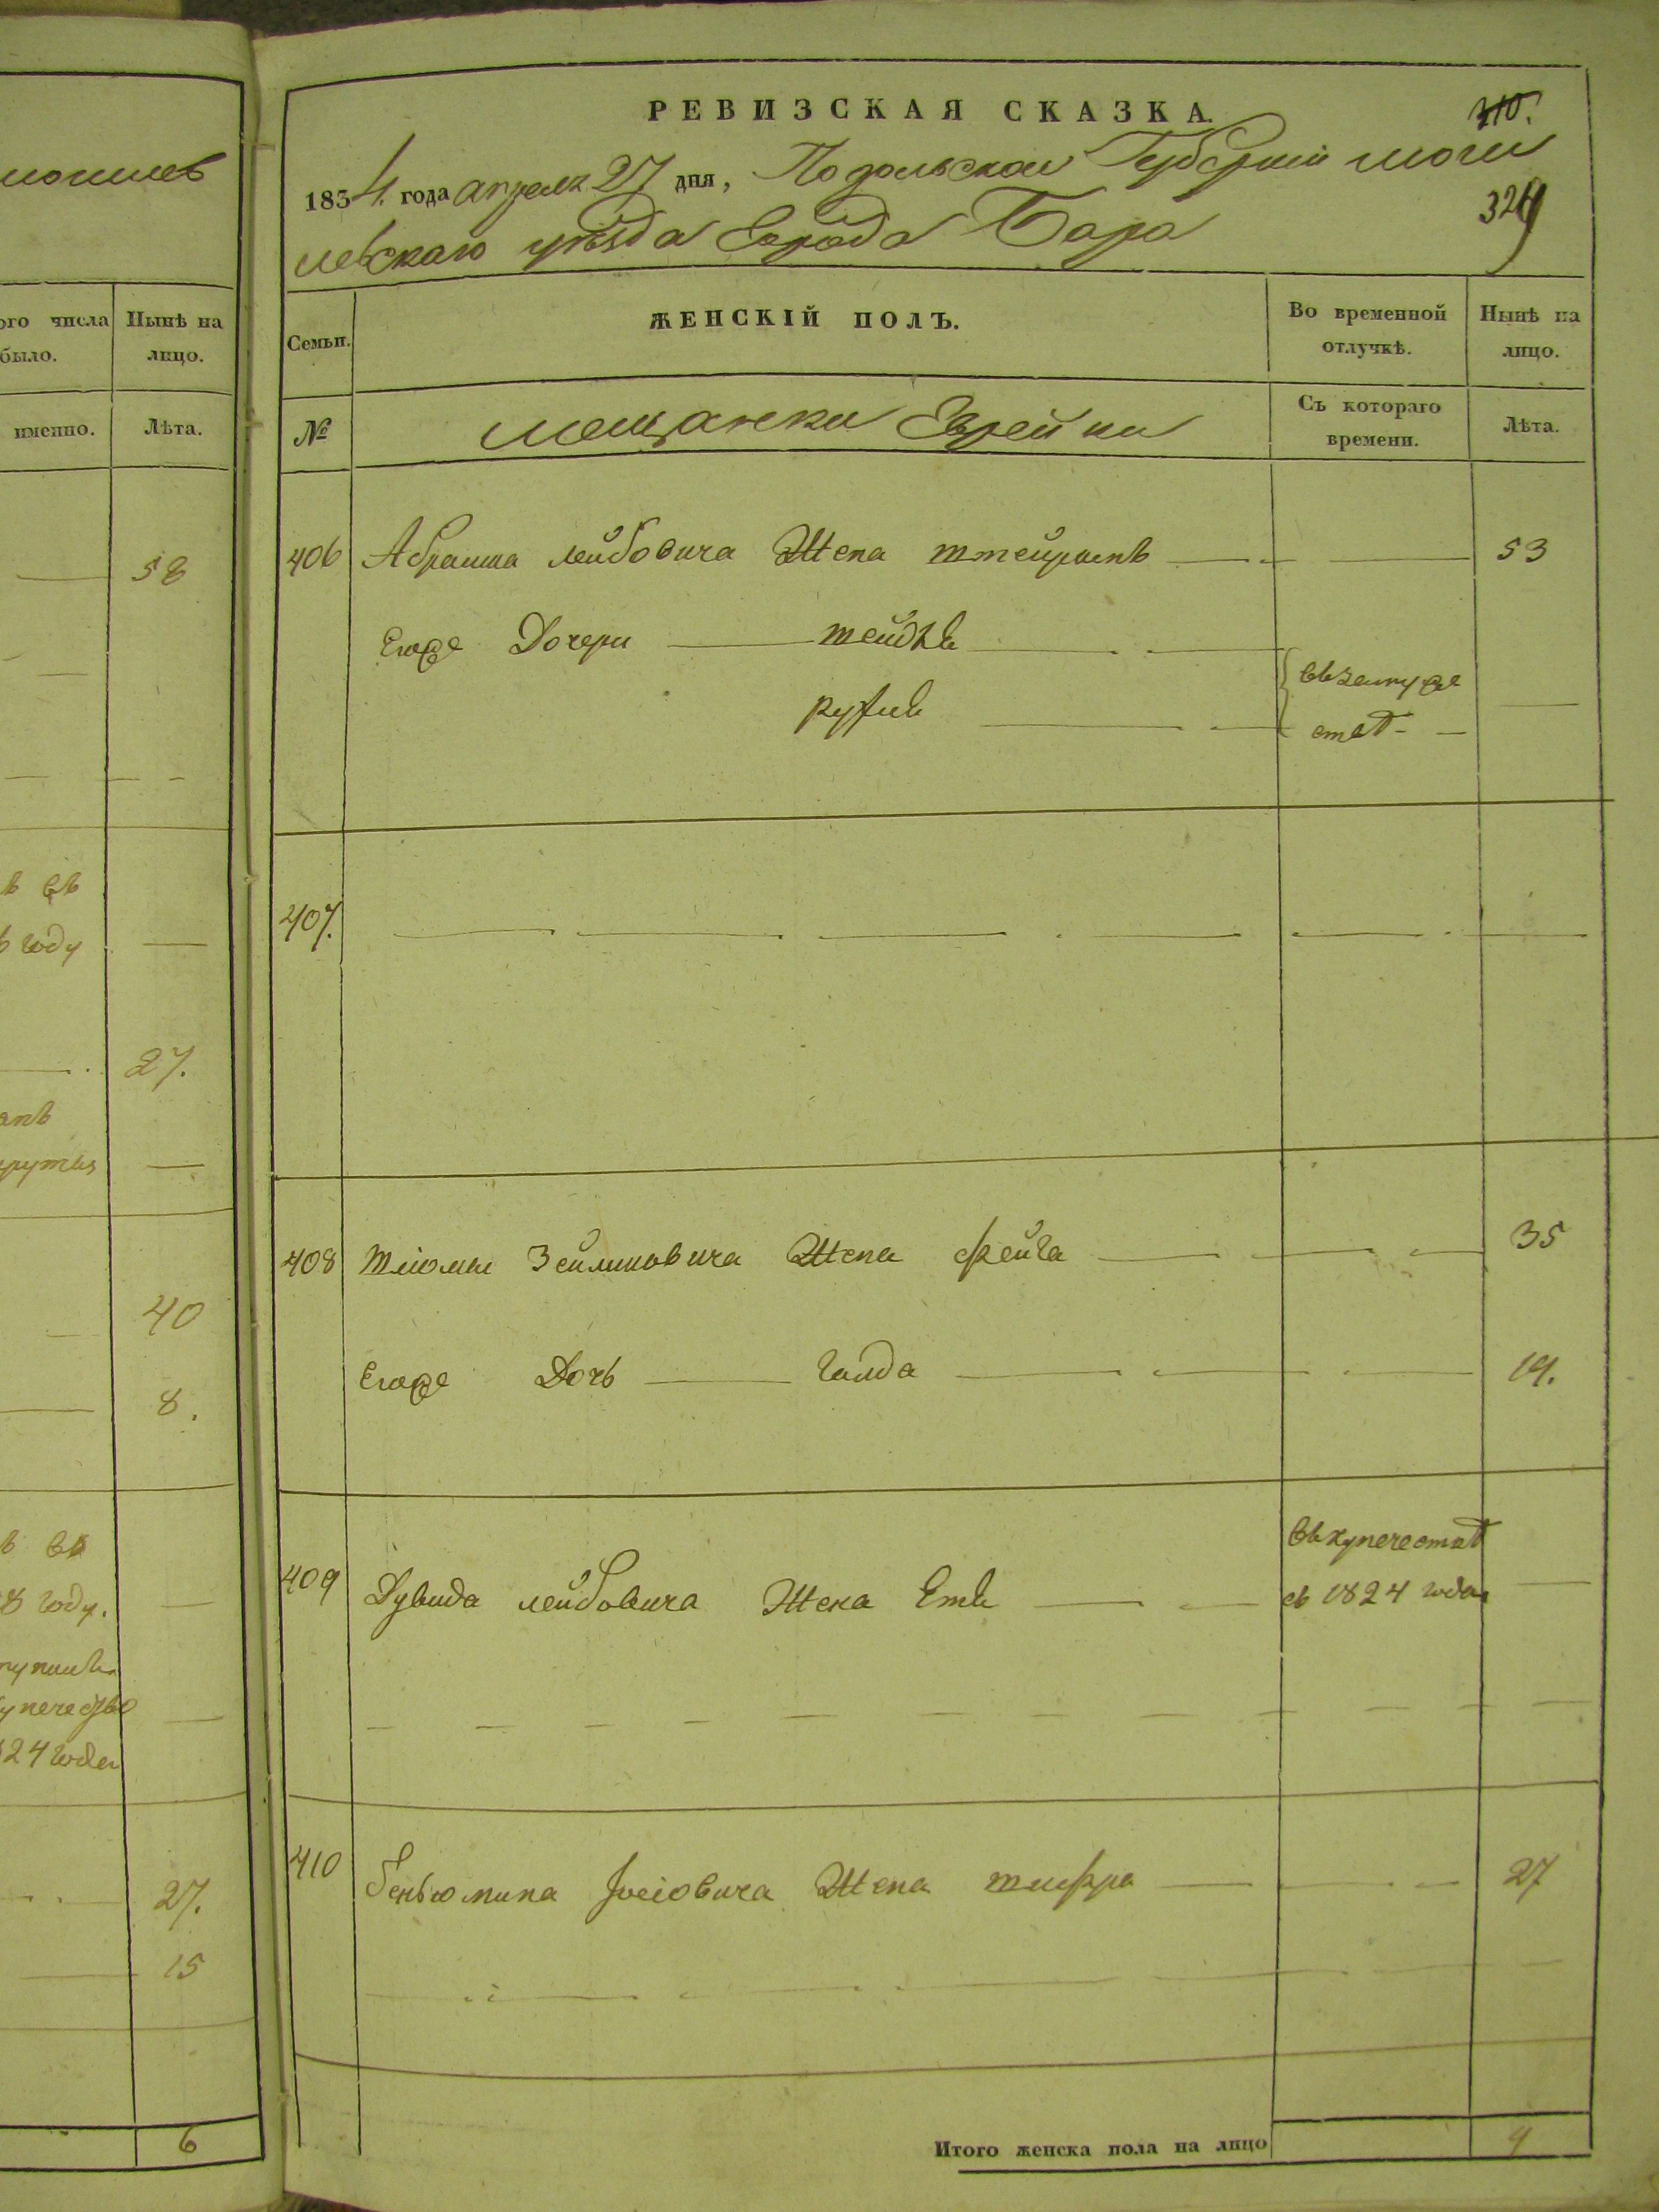 монилев
ого числа Нынѣ на
было. лицо.
именно. Лѣта.
58
ъ въ
году
27.
40
8.
въ
8 году.
24 года
27.
15
6
РЕВИЗСКАЯ СКАЗКА.
310.
1834. года апреля 27 дня, Подольской Губернии моги
324
левскаго уѣзда Города Бара
Семьи. ЖЕНСКІЙ ПОЛЪ. Во временной отлучкѣ. Нынѣ на лицо.
№ мещанки Еврейки Съ котораго времени. Лѣта.
406 Абрама лейбовича Жена 53
Егоже Дочери тейдля
рухля
взамужестве
407.
408 Шлiомы Зейликовича Жена фейга 35
Егоже Дочь Голда 14.
409 Дувида лейбовича Жена Етя
въ купечестве
съ 1824 года
410 беньюмина Iосiовича Жена шифра 27
Итого женска пола на лицо 4